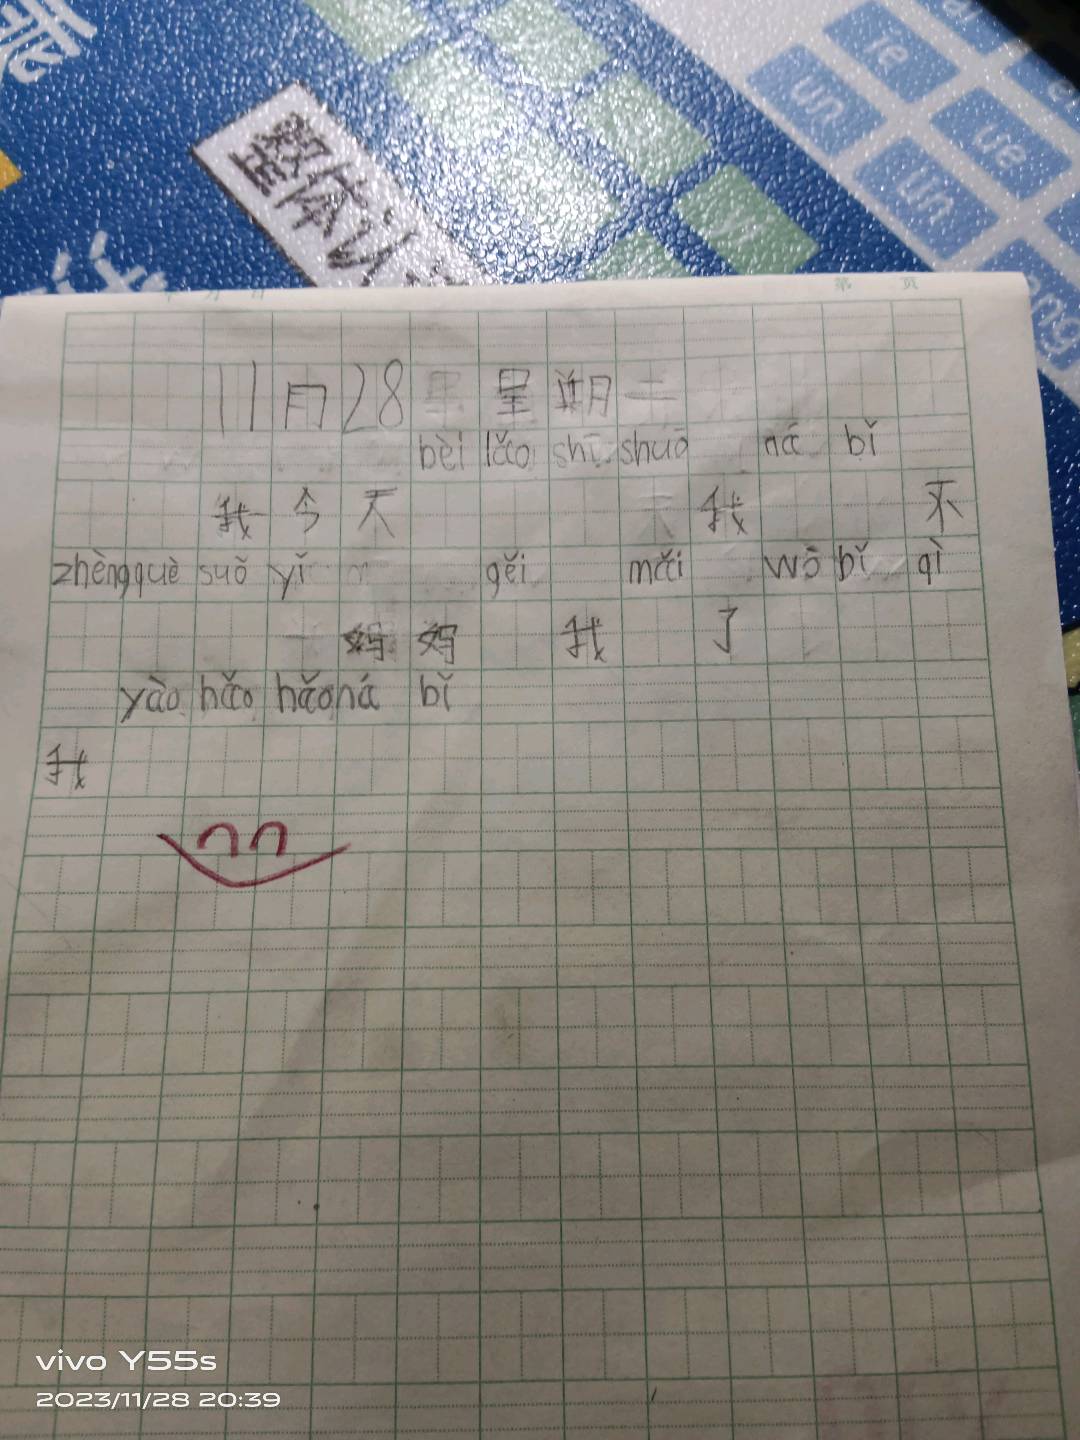 un
ie
un
ue
ün
yi
ang
整体认
第 页
11月28 星期二
bèi lǎo shī shuō ná bǐ
我今天 我 不
zhèng què suǒ yǐ gěi mǎi wò bǐ qì
妈妈 我 了
yào hǎo hǎo ná bǐ
我
vivo Y55s
2023/11/28 20:39